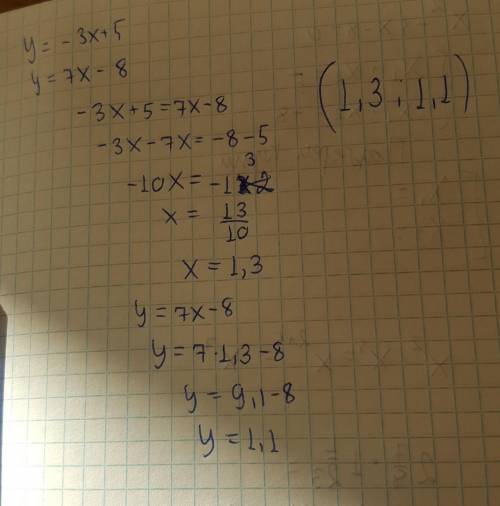 y = -3x+5
y = 7x - 8
-3x+5=7x-8
-3x-7x=-8-5
-10x = -13
x = 13/10
x = 1,3
y = 7x-8
y = 7·1,3-8
y = 9,1-8
y = 1,1
(1,3 ; 1,1)